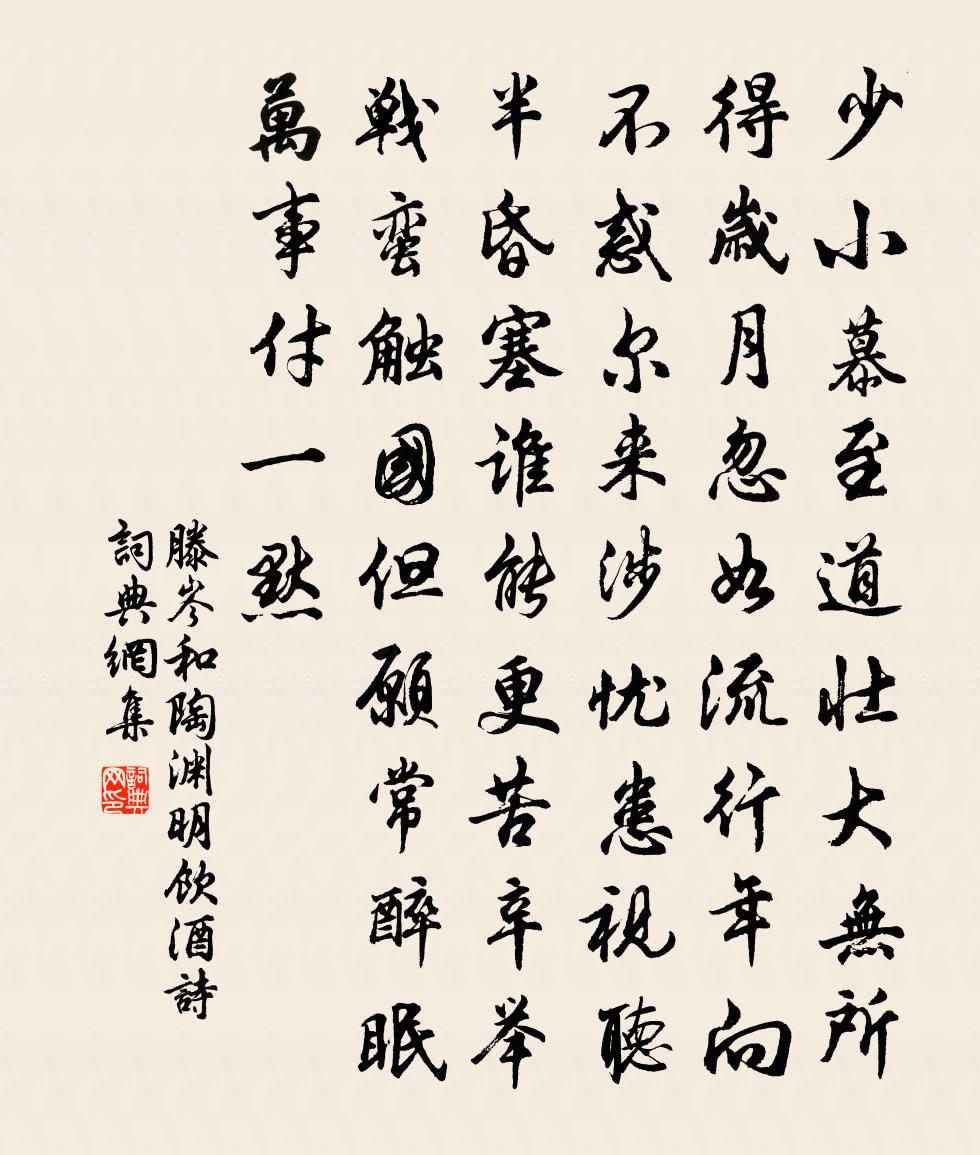 少小慕至道壮大無所
得歲月忽如流行年向
不惑尔来涉忧患視聴
半昏塞谁能更苦辛举
戦蛮触國但願常醉眠
萬事付一默
滕岑和陶渊明飲酒詩
詞典網集
詞典网印